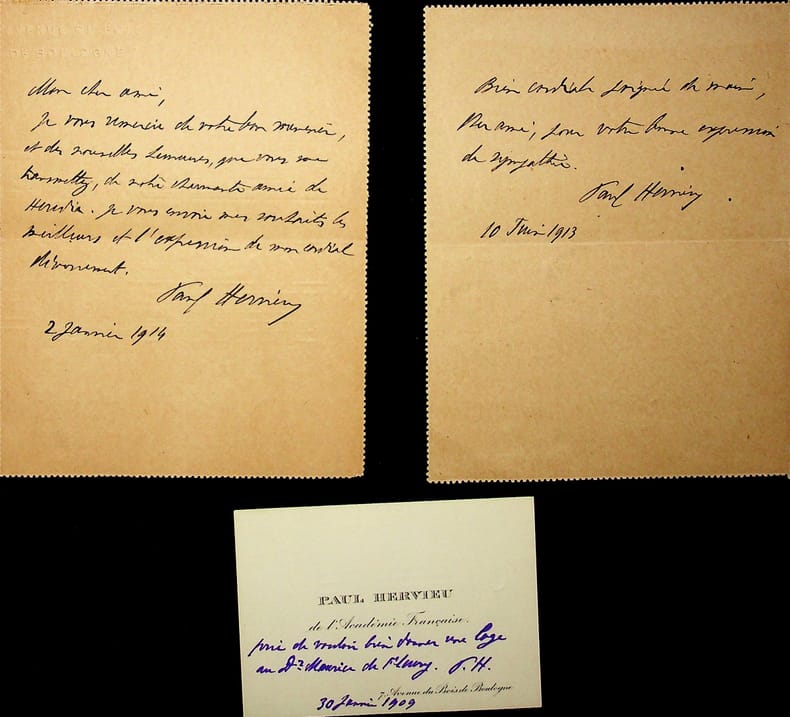 AVENUE DU BOIS
DE BOULOGNE
Mon cher ami,
Je vous remercie de votre bon souvenir,
et des nouvelles que vous me
transmettez, de notre charmante amie de
Heredia. Je vous envoie mes souhaits les
meilleurs et l'expression de mon cordial
dévouement.
Paul Hervieu
2 Janvier 1914
Bien cordiale poignée de main,
cher ami, pour votre bonne expression
de sympathie.
Paul Hervieu.
10 Juin 1913
PAUL HERVIEU
de l'Académie Française.
prie de vouloir bien donner une loge
au Dr Maurice de Fleury. P. H.
7, Avenue du Bois de Boulogne
30 Janvier 1909